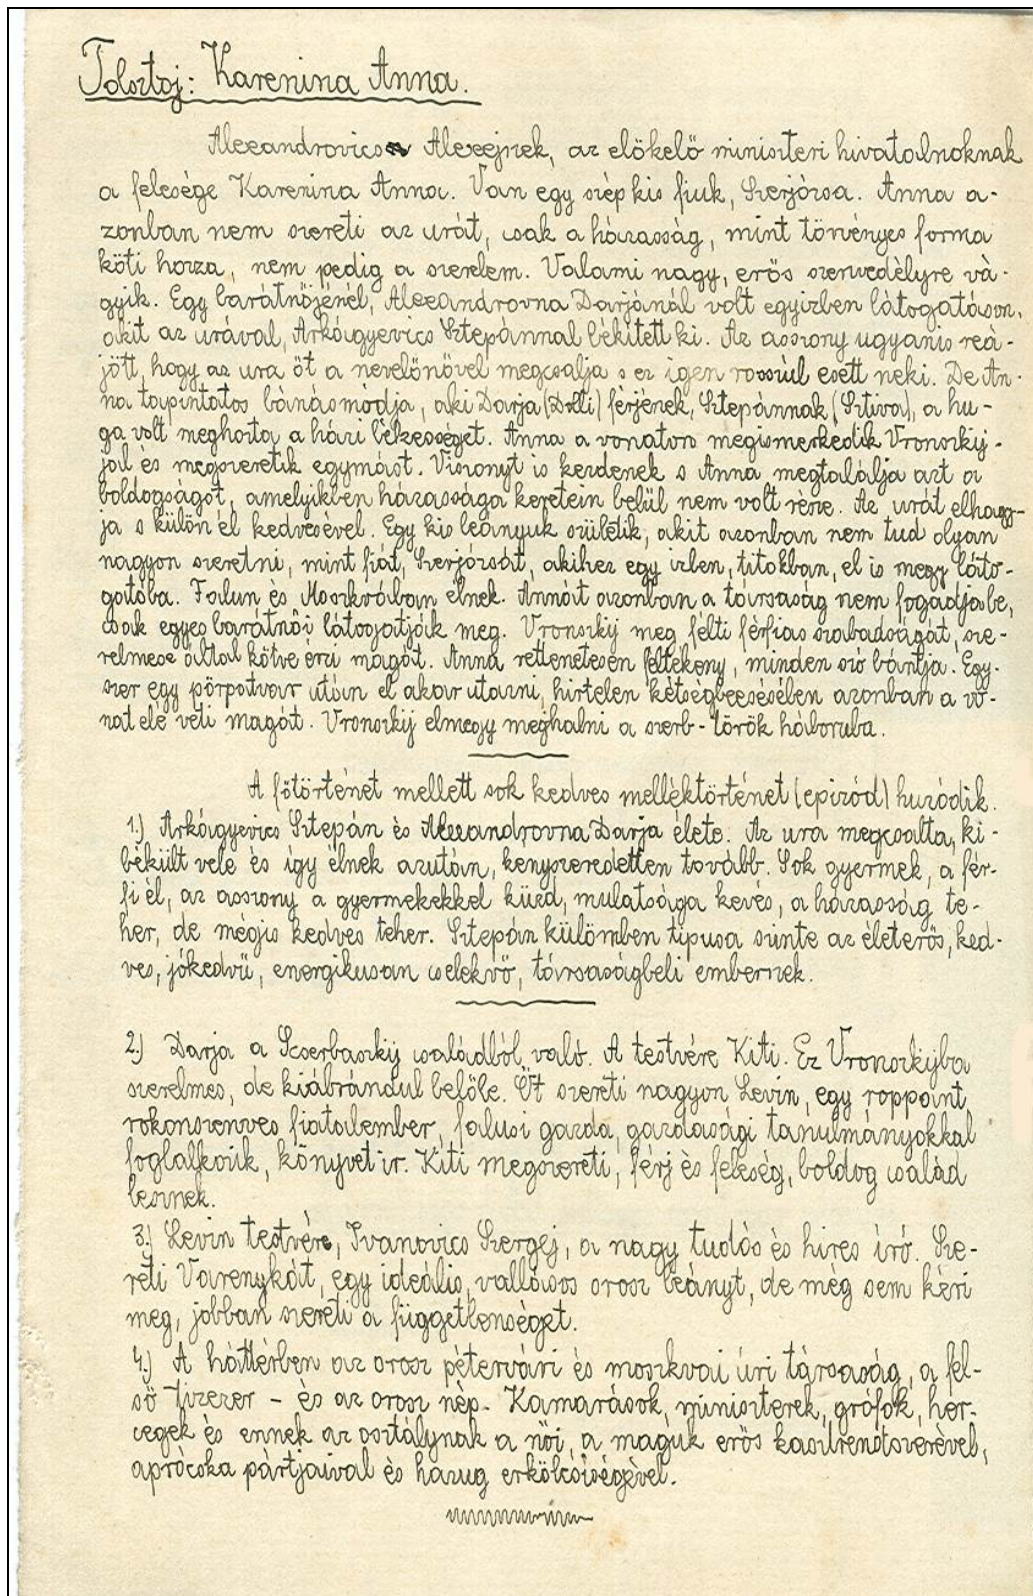 Tolsztoj: Karenina Anna.
Alexandrovics Alexejnek, az előkelő miniszteri hivatalnoknak
a felesége Karenina Anna. Van egy szép kis fiuk, Szerjózsa. Anna a-
zonban nem szereti az urát, csak a házasság, mint törvényes forma
köti hozza, nem pedig a szerelem. Valami nagy, erős szenvedélyre vá-
gyik. Egy barátnőjénél, Alexandrovna Darjánál volt egyizben látogatóson,
akit az urával, Arkágyevics Sztepánnal békített ki. Az asszony ugyanis reá-
jött, hogy az ura őt a nevelőnővel megcsalja s ez igen rosszúl esett neki. De An-
na tapintatos bánásmódja, aki Darja (Dolli) férjének, Sztepánnak (Sztiva), a hu-
ga volt meghozta a házi békességet. Anna a vonaton megismerkedik Vronszkij-
jal és megszeretik egymást. Viszonyt is kezdenek s Anna megtalálja azt a
boldogságot, amelyikben házassága keretein belül nem volt része. Az urát elhagy-
ja s külön él kedvesével. Egy kis leányuk születik, akit azonban nem tud olyan
nagyon szeretni, mint fiát, Szerjózsát, akihez egy izben, titokban, el is megy láto-
gatóba. Falun és Moszkvában élnek. Annát azonban a társaság nem fogadja be,
csak egyes barátnői látogatják meg. Vronszkij meg félti férfias szabadságát, sze-
relmese által kötve érzi magát. Anna rettenetesen féltékeny, minden szó bántja. Egy-
szer egy pörpatvar után el akar utazni, hirtelen kétségbeesésében azonban a vo-
nat elé veti magát. Vronszkij elmegy meghalni a szerb-török háboruba.
A főtörténet mellett sok kedves melléktörténet (epizód) huzódik.
1.) Arkágyevics Sztepán és Alexandrovna Darja élete. Az ura megcsalta, ki-
békült vele és így élnek azután, kényszeredetten tovább. Sok gyermek, a fér-
fi él, az asszony a gyermekekkel küzd, mulatsága kevés, a házasság te-
her, de mégis kedves teher. Sztepán külömben tipusa szinte az életerős, ked-
ves, jókedvü, energikusan cselekvő, társaságbeli embernek.
2.) Darja a Scserbaszkij családból való. A testvére Kiti. Ez Vronszkijba
szerelmes, de kiábrándul belőle. Őt szereti nagyon Levin, egy roppant
rokonszenves fiatalember, falusi gazda, gazdasági tanulmányokkal
foglalkozik, könyvet ir. Kiti megszereti, férj és feleség, boldog család
lesznek.
3.) Levin testvére, Ivanovics Szergej, a nagy tudós és hires író. Sze-
reti Varenykát, egy ideális, vallásos orosz leányt, de még sem kéri
meg, jobban szereti a függetlenséget.
4.) A háttérben az orosz pétervári és moszkvai úri társaság, a fel-
ső tizezer - és az orosz nép. Kamarások, miniszterek, grófok, her-
cegek és ennek az osztálynak a női, a maguk erős kasztrendszerével,
aprócska pártjaival és hazug erkölcsiségével.